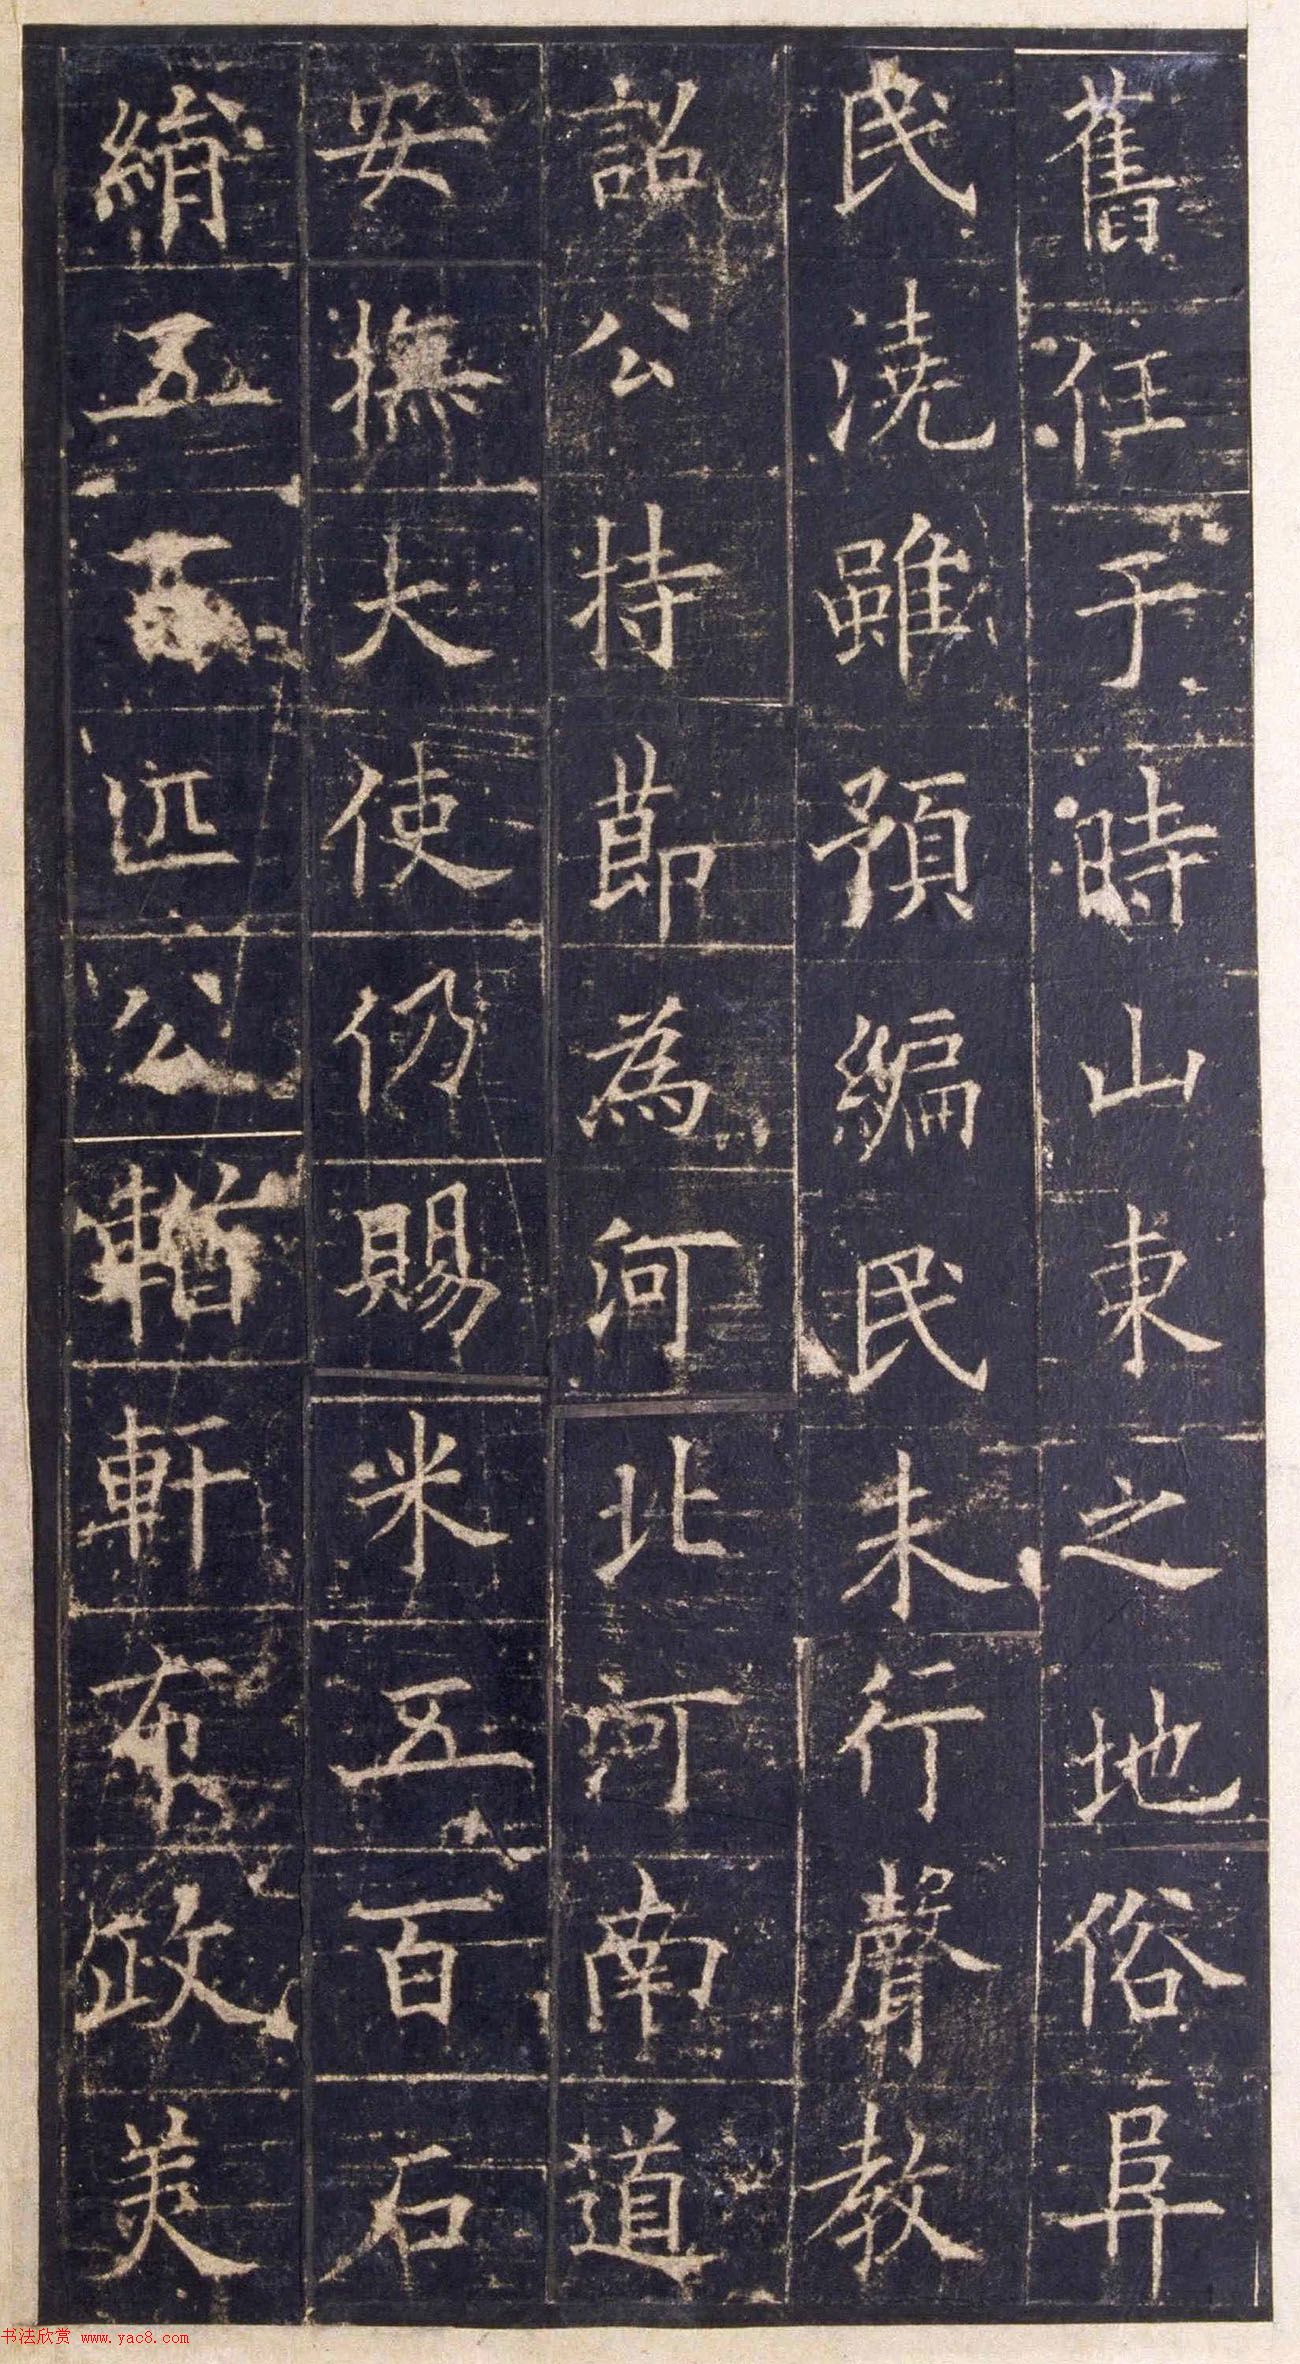 舊任于時山東之地俗阜
民澆雖預編民未行聲教
詔公持節為河北河南道
安撫大使仍賜米五百石
絹五百匹公輶軒布政美
书法欣赏 www.yac8.com